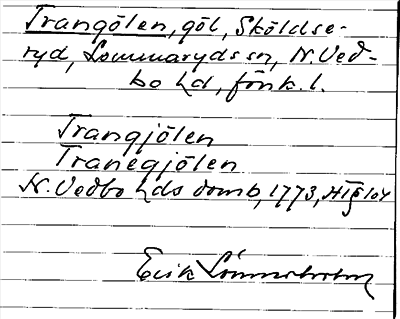 Trangölen, göl, Sköldse-
ryd, Lommaryds sn, N. Ved-
bo hd, Jönk. l.
Trangjölen
Tranegjölen
N. Vedbo hds domb, 1773,
Erik